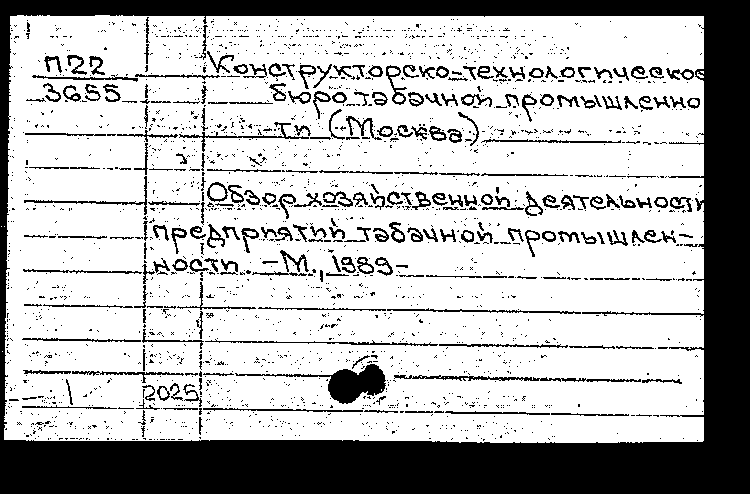 П22
3655
Конструкторско-технологическое
бюро табачной промышленно
-ти (Москва)
Обзор хозяйственной деятельности
предприятий табачной промышлен-
ности. -М., 1989-
2025